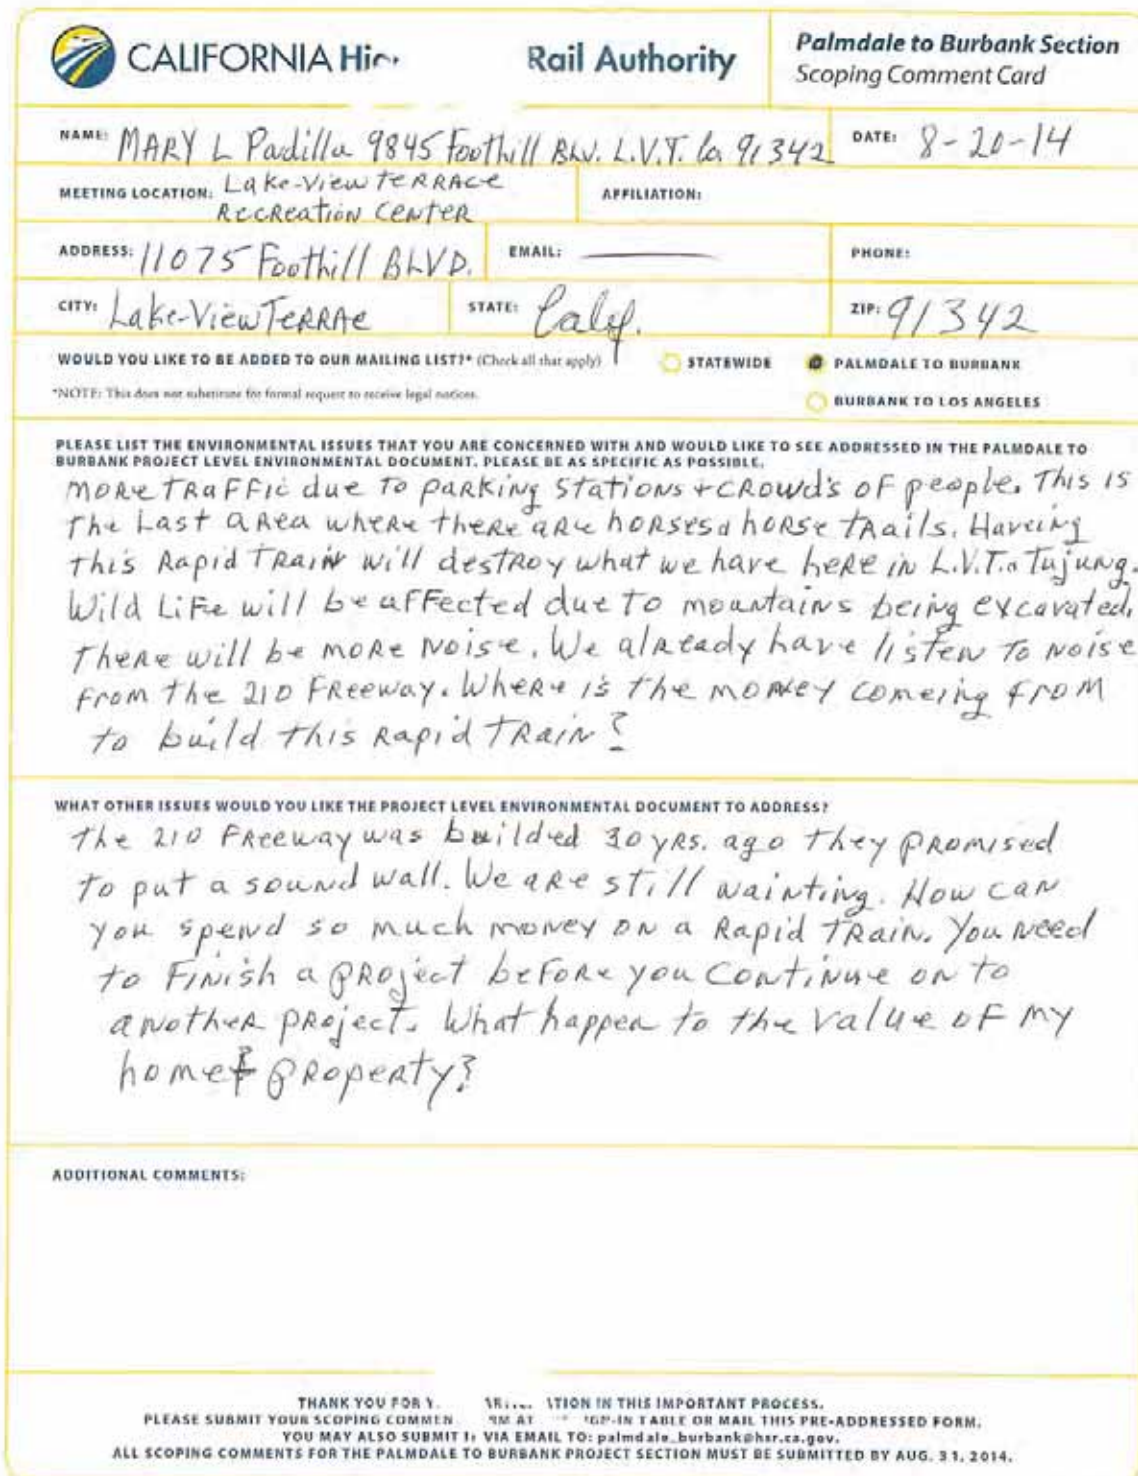 CALIFORNIA Rail Authority
Palmdale to Burbank Section
Scoping Comment Card
NAME: MARY L Padilla 9845 Foothill BLV. L.V.T. Ca 91342
DATE: 8-20-14
MEETING LOCATION: Lake-View TERRACe
RecReation CenteR
AFFILIATION:
ADDRESS: 11075 Foothill BLVD.
EMAIL:
PHONE:
CITY: Lake-View TeRRAe
STATE: Calif.
ZIP: 91342
WOULD YOU LIKE TO BE ADDED TO OUR MAILING LIST?* (Check all that apply)
STATEWIDE
PALMDALE TO BURBANK
*NOTE: This does not substitute for formal request to receive legal notices.
BURBANK TO LOS ANGELES
PLEASE LIST THE ENVIRONMENTAL ISSUES THAT YOU ARE CONCERNED WITH AND WOULD LIKE TO SEE ADDRESSED IN THE PALMDALE TO
BURBANK PROJECT LEVEL ENVIRONMENTAL DOCUMENT. PLEASE BE AS SPECIFIC AS POSSIBLE.
MORe TRaFFic due To paRKing Stations + CRowd's oF people. This is
The Last aRea where theRe aRe hoRses d hoRse tRails. Haveing
this Rapid TRaiN will destRoy what we have heRe iN L.V.T. Tujung.
Wild LiFe will be aFFected due To mountaiNs being excavated.
TheRe will be moRe Noise. We alReady have listen To Noise
From the 210 FReeway. WheRe is the moNey comeing fRoM
to build this Rapid TRaiN?
WHAT OTHER ISSUES WOULD YOU LIKE THE PROJECT LEVEL ENVIRONMENTAL DOCUMENT TO ADDRESS?
The 210 FReeway was builded 30 yRs. ago They pRomised
To put a souNd wall. We aRe still wainting. How caN
you speNd so much moNey oN a Rapid TRaiN. You Need
to FiNish a pRoject beFoRe you ContiNue on to
aNotheR pRoject. What happeN to the value oF my
home & pRopeRty?
ADDITIONAL COMMENTS:
THANK YOU FOR IN THIS IMPORTANT PROCESS.
PLEASE SUBMIT YOUR SCOPING AT TABLE OR MAIL THIS PRE-ADDRESSED FORM.
YOU MAY ALSO SUBMIT VIA EMAIL TO: palmdale_burbank@hsr.ca.gov.
ALL SCOPING COMMENTS FOR THE PALMDALE TO BURBANK PROJECT SECTION MUST BE SUBMITTED BY AUG. 31, 2014.